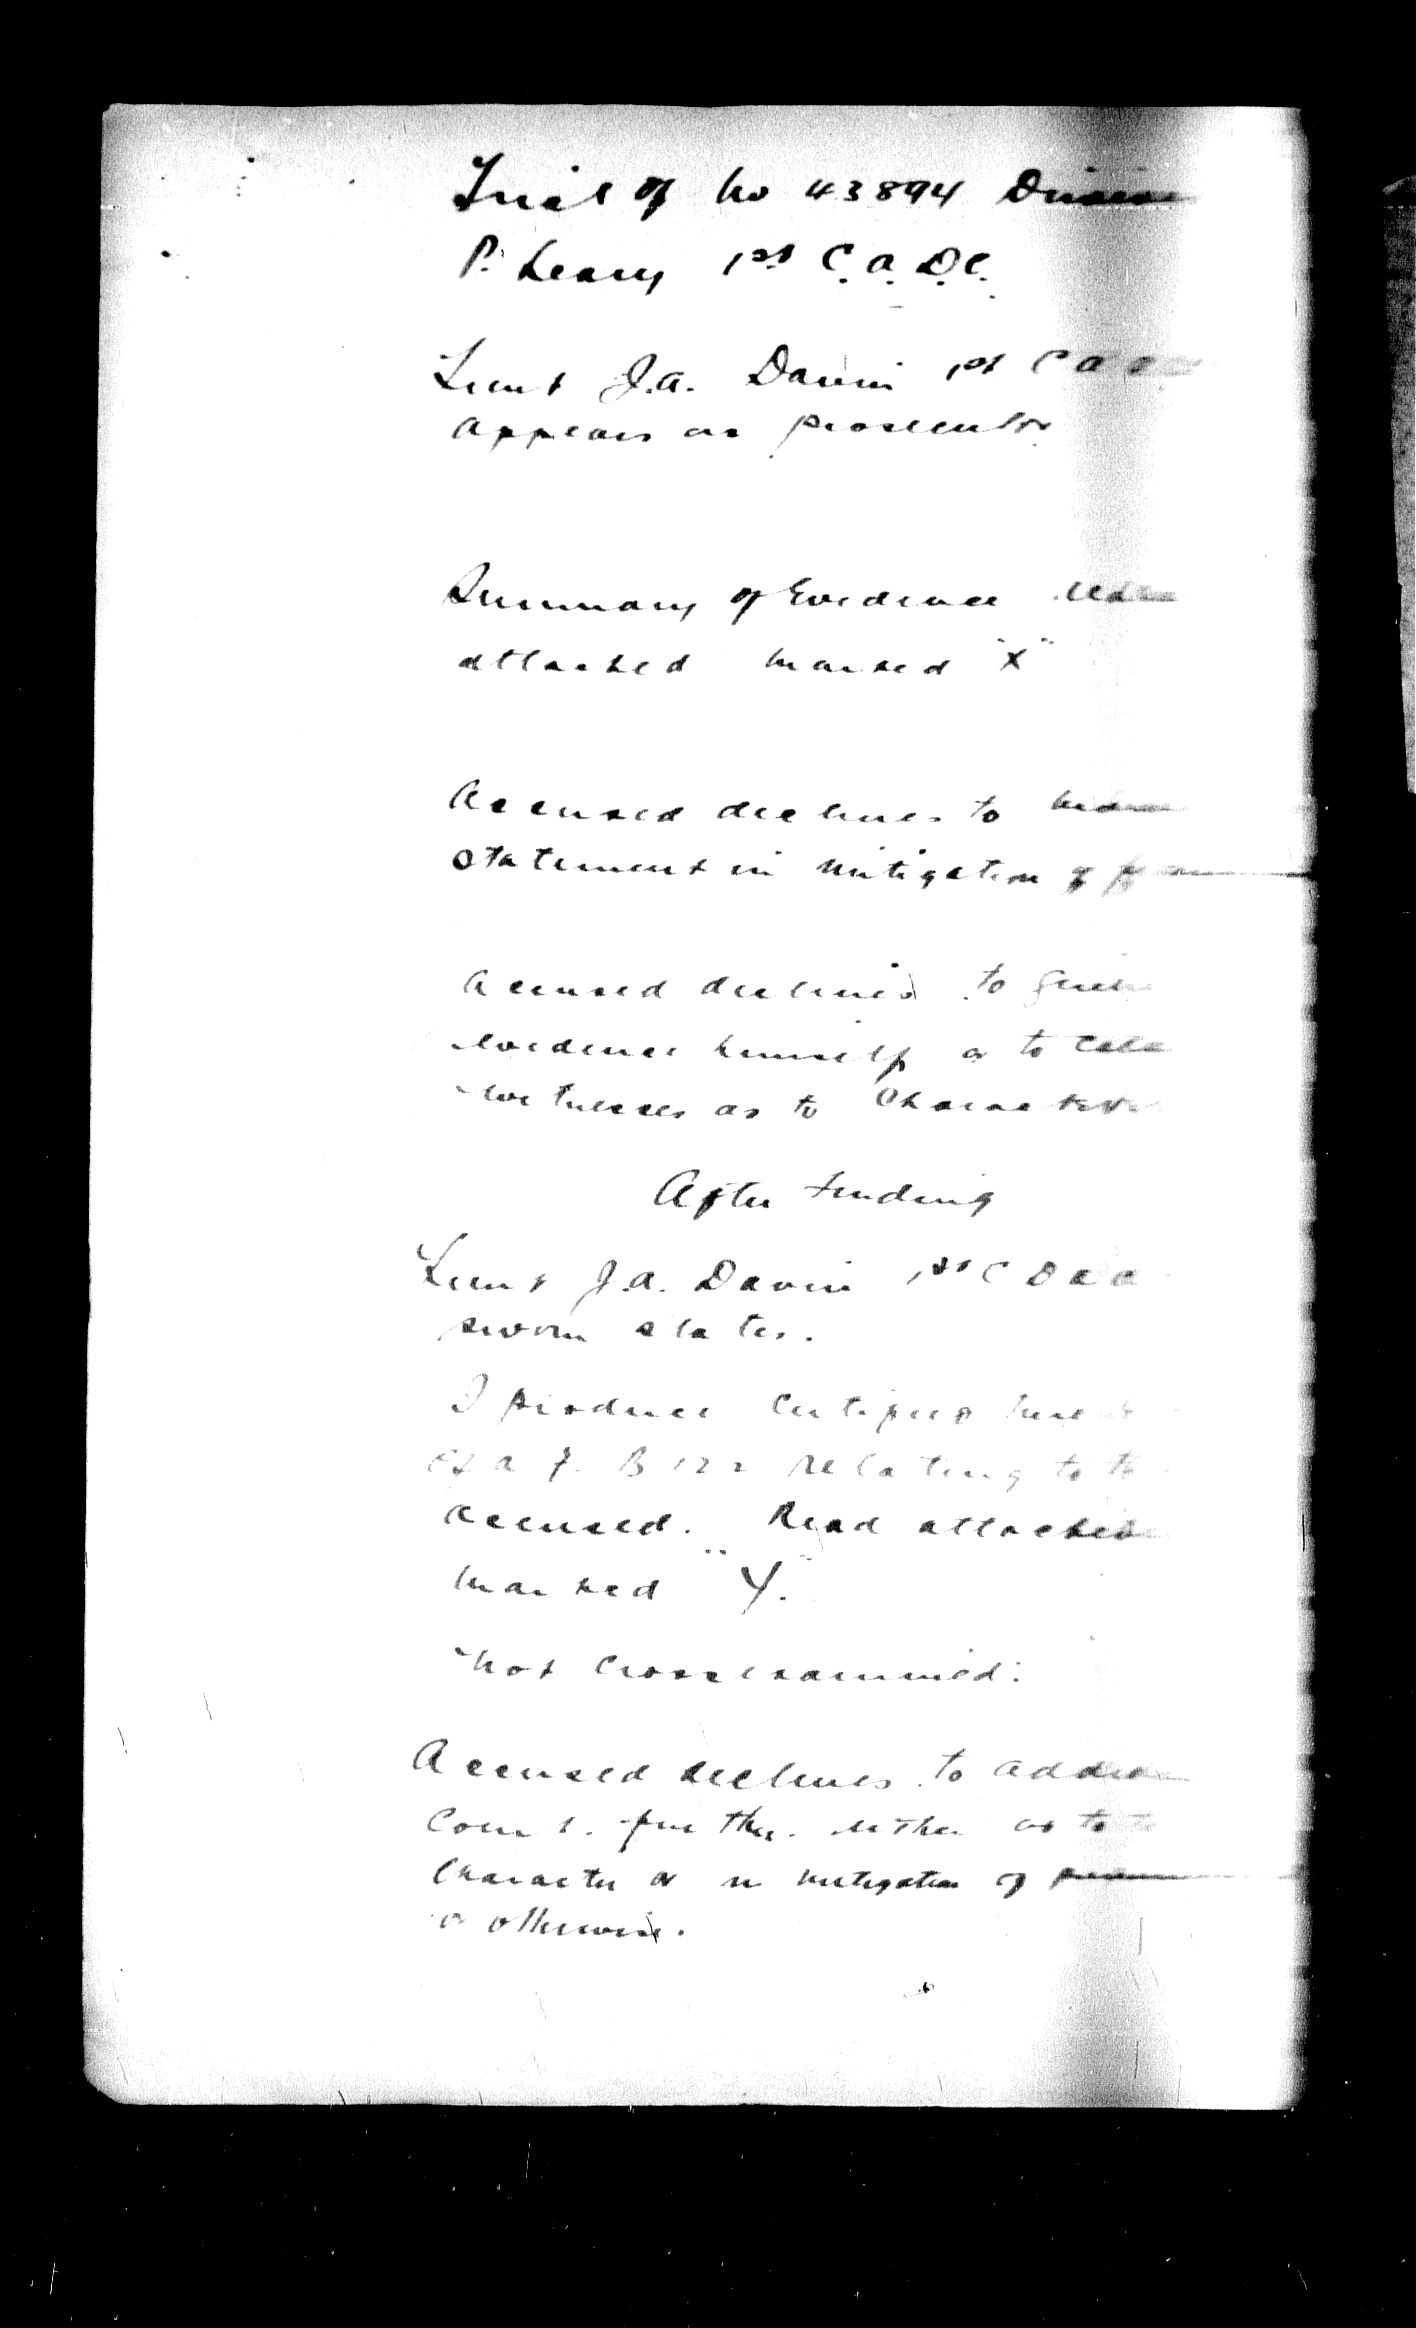 Trial of No 43894 Driver
P. Leary 1st C.A.D.C.
Lieut J.A. Davin 1st C A
appears as prosecutor
Summary of Evidence
attached marked "X"
Accused declines to
statement in mitigation of
Accused declines to give
evidence himself or to call
witnesses as to character
After finding
Lieut J.A. Davin 1st C D A C
sworn states.
I produce certified true
of A F. B 122 relating to
accused. Read attached
marked "Y".
Not cross examined.
Accused declines to address
Court further either as to
character or in mitigation of
or otherwise.